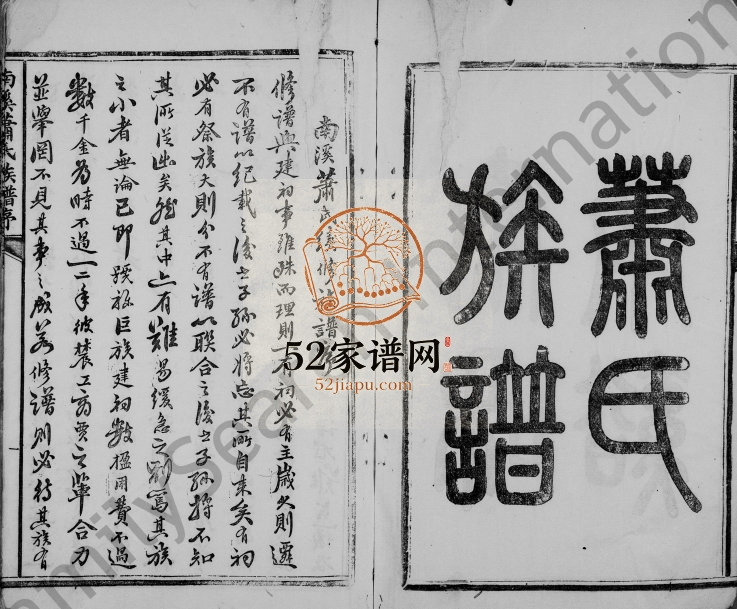 蕭氏
族譜
南溪蕭氏續修族譜序
修譜與建祠事雖殊而理則一有祠必有主歲久則遷
不有譜以紀載之後之子孫必將忘其所自來矣有祠
必有祭族大則分不有譜以聯合之後之子孫將不知
其所從出矣然其中亦有難易緩急之別焉其族
之小者無論已即號稱巨族建祠數楹用費不過
數千金為時不過一二年彼農工商賈之輩合力
並舉罔不見其事之成若修譜則必待其族有
南溪蕭氏族譜序
52家谱网
52jiapu.com
FamilySearch International